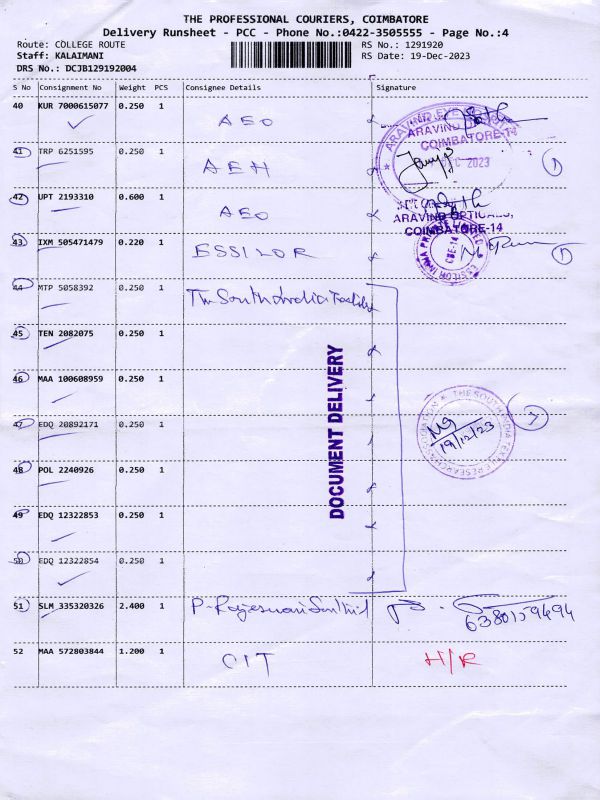 THE PROFESSIONAL COURIERS, COIMBATORE
Delivery Runsheet - PCC - Phone No.:0422-3505555 - Page No.:4
Route: COLLEGE ROUTE
RS No.: 1291920
Staff: KALAIMANI
RS Date: 19-Dec-2023
DRS No.: DCJB129192004
S No Consignment No Weight PCS Consignee Details Signature
40 KUR 7000615077 0.250 1 AEO
41 TRP 6251595 0.250 1 AEH
42 UPT 2193310 0.600 1 AEO
43 IXM 505471479 0.220 1 ESSILOR
44 MTP 5058392 0.250 1 The South India
45 TEN 2082075 0.250 1
46 MAA 100608959 0.250 1
47 EDQ 20892171 0.250 1
48 POL 2240926 0.250 1
49 EDQ 12322853 0.250 1
50 EDQ 12322854 0.250 1
51 SLM 335320326 2.400 1 6380159494
52 MAA 572803844 1.200 1 CIT H/R
DOCUMENT DELIVERY
ARAVIND
COIMBATORE-14
DEC 2023
ARAVIND OPTICALS,
COIMBATORE-14
CBE-14
19/12/23
7